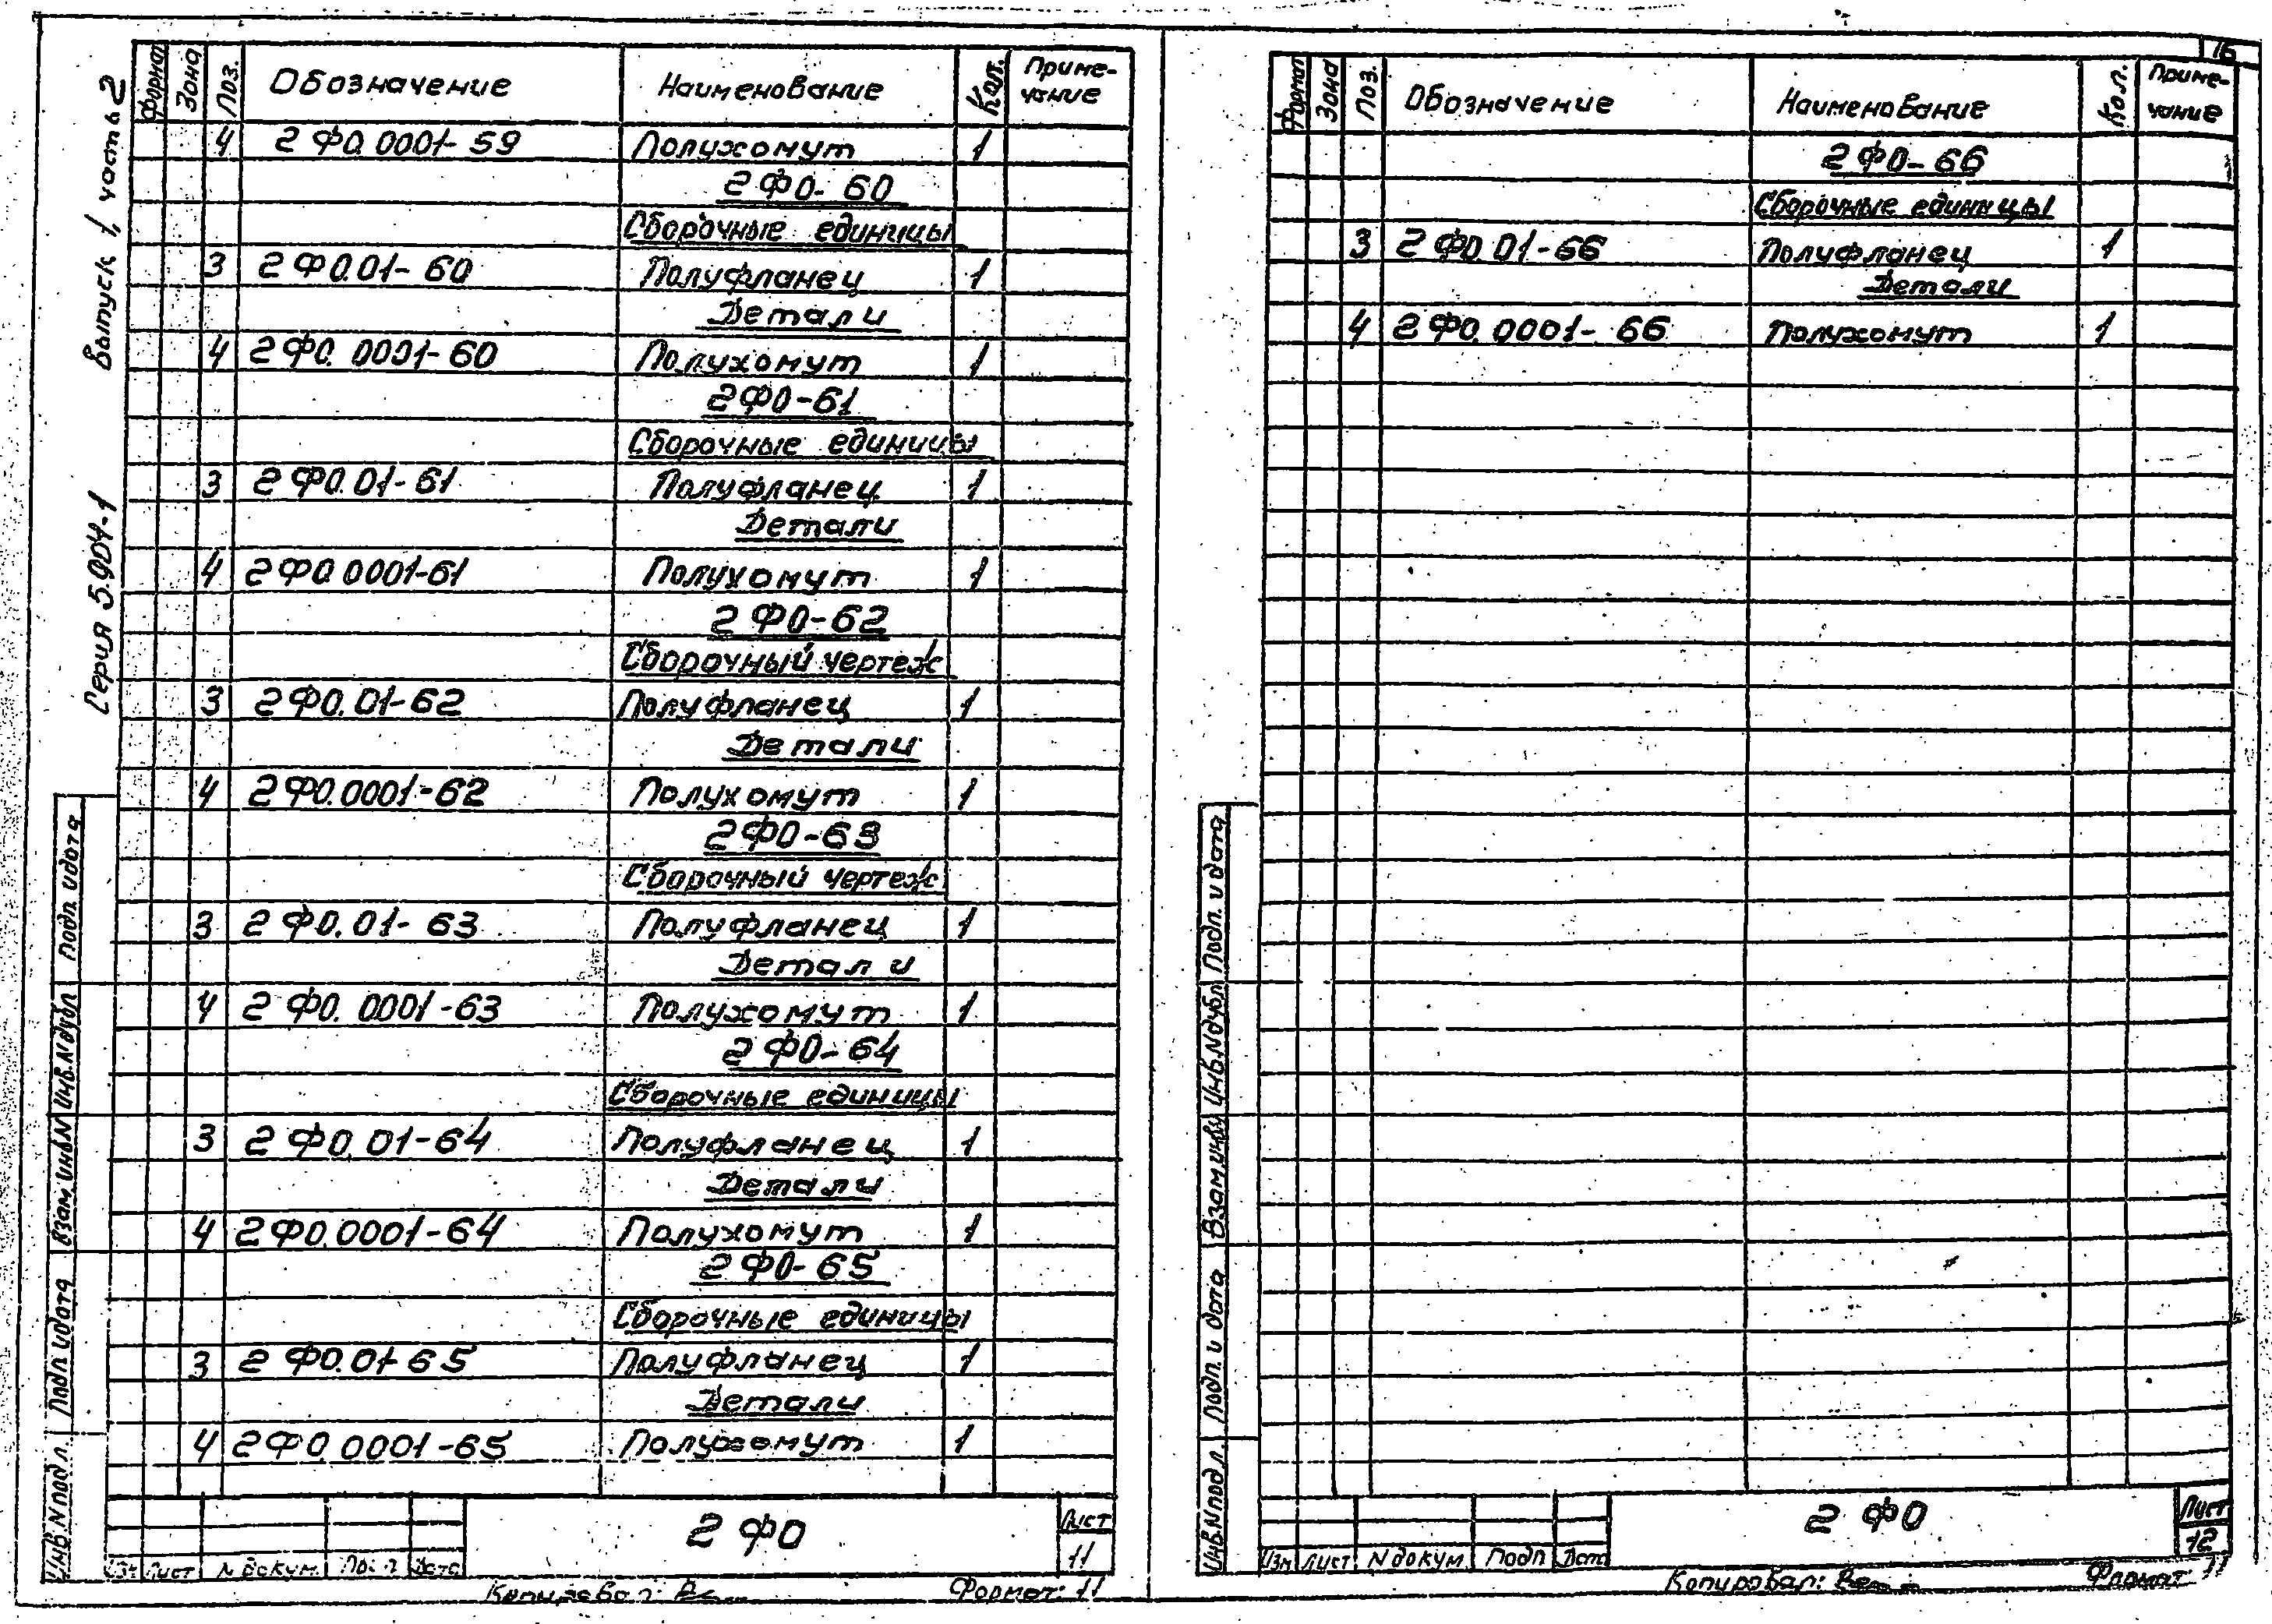 16
Серия 5.904-1 Выпуск 1, часть 2
Формат Зона Поз. Обозначение Наименование Кол. Приме-чание
4 2ФО.0001-59 Полухомут 1
2ФО-60
Сборочные единицы
3 2ФО.01-60 Полуфланец 1
Детали
4 2ФО.0001-60 Полухомут 1
2ФО-61
Сборочные единицы
3 2ФО.01-61 Полуфланец 1
Детали
4 2ФО.0001-61 Полухомут 1
2ФО-62
Сборочный чертеж
3 2ФО.01-62 Полуфланец 1
Детали
4 2ФО.0001-62 Полухомут 1
2ФО-63
Сборочный чертеж
3 2ФО.01-63 Полуфланец 1
Детали
4 2ФО.0001-63 Полухомут 1
2ФО-64
Сборочные единицы
3 2ФО.01-64 Полуфланец 1
Детали
4 2ФО.0001-64 Полухомут 1
2ФО-65
Сборочные единицы
3 2ФО.01-65 Полуфланец 1
Детали
4 2ФО.0001-65 Полухомут 1
Инв.N подл. Подп и дата Взам инв N Инв.N дубл Подп. и дата
Изм Лист N докум. Подп Дата
2ФО
Лист
11
Копировал:
Формат: 11
Формат Зона Поз. Обозначение Наименование Кол. Приме-чание
2ФО-66
Сборочные единицы
3 2ФО.01-66 Полуфланец 1
Детали
4 2ФО.0001-66 Полухомут 1
Инв.N подл. Подп. и дата Взам.инв N Инв.N дубл Подп. и дата
Изм Лист N докум. Подп Дата
2ФО
Лист
12
Копировал:
Формат 11